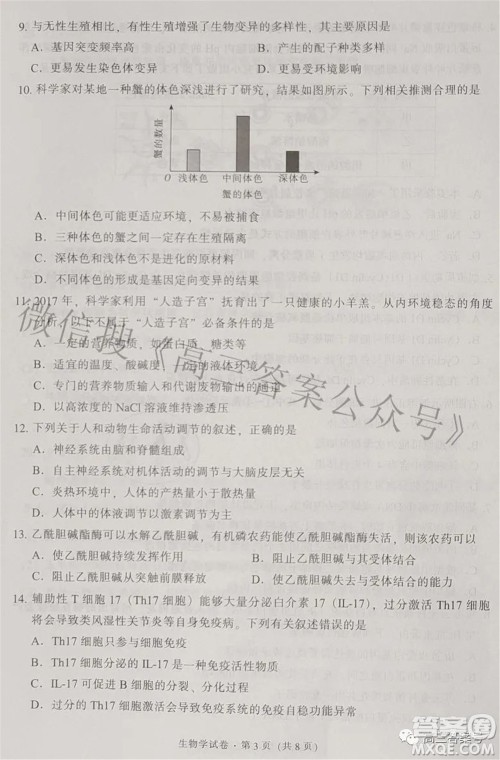 9. 与无性生殖相比，有性生殖增强了生物变异的多样性，其主要原因是
A．基因突变频率高 B．产生的配子种类多样
C．更易发生染色体变异 D．更易受环境影响
10. 科学家对某地一种蟹的体色深浅进行了研究，结果如图所示。下列相关推测合理的是
蟹的数量
O 浅体色 中间体色 深体色
蟹的体色
A．中间体色可能更适应环境，不易被捕食
B．三种体色的蟹之间一定存在生殖隔离
C．深体色和浅体色不是进化的原材料
D．不同体色的形成是基因定向变异的结果
11. 2017 年，科学家利用“人造子宫”抚育出了一只健康的小羊羔。从内环境稳态的角度
分析，以下不属于“人造子宫”必备条件的是
A．一定的营养物质，如蛋白质、糖类等
B．适宜的温度、酸碱度
的液体环境
C．专门的营养物质输入和代谢废物输出的通道
D．以高浓度的 NaCl 溶液维持渗透压
12. 下列关于人和动物生命活动调节的叙述，正确的是
A．神经系统由脑和脊髓组成
B．自主神经系统对机体活动的调节与大脑皮层无关
C．炎热环境中，人体的产热量小于散热量
D．人体中的体液调节以激素调节为主
13. 乙酰胆碱酯酶可以水解乙酰胆碱，有机磷农药能使乙酰胆碱酯酶失活，则该农药可以
A．使乙酰胆碱持续发挥作用 B．阻止乙酰胆碱与其受体结合
C．阻止乙酰胆碱从突触前膜释放 D．使乙酰胆碱失去与受体结合的能力
14. 辅助性 T 细胞 17（Th17 细胞）能够大量分泌白介素 17（IL-17），过分激活 Th17 细胞
将会导致类风湿性关节炎等自身免疫病。下列有关叙述错误的是
A．Th17 细胞只参与细胞免疫
B．Th17 细胞分泌的 IL-17 是一种免疫活性物质
C．IL-17 可促进 B 细胞的分裂、分化过程
D．过分激活 Th17 细胞将会导致免疫系统的免疫自稳功能异常
生物学试卷·第 3 页（共 8 页）
微信搜《高三答案公众号》
高三答案
答案圈
MXQE.COM